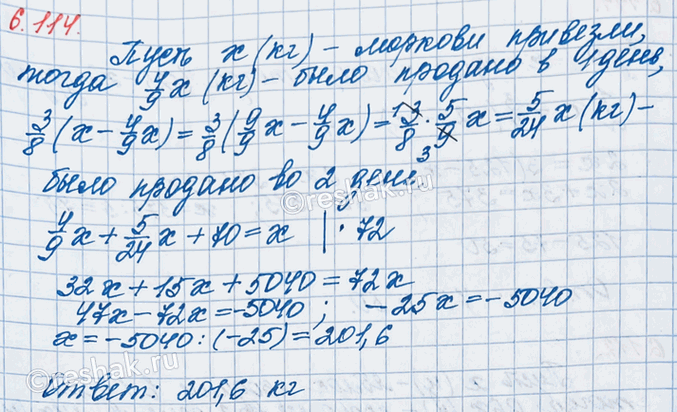 6.114.
Пусть x (кг) – моркови привезли,
тогда 4/9 x (кг) – было продано в 1 день,
3/8 (x – 4/9 x) = 3/8 (9/9 x – 4/9 x) = 3/8 · 5/9 x = 5/24 x (кг) –
1 3
было продано во 2 день
4/9 x + 5/24 x + 70 = x | · 72
32x + 15x + 5040 = 72x
47x – 72x = –5040 ; – 25x = –5040
x = –5040 : (–25) = 201,6
Ответ: 201,6 кг
reshak.ru
reshak.ru
reshak.ru